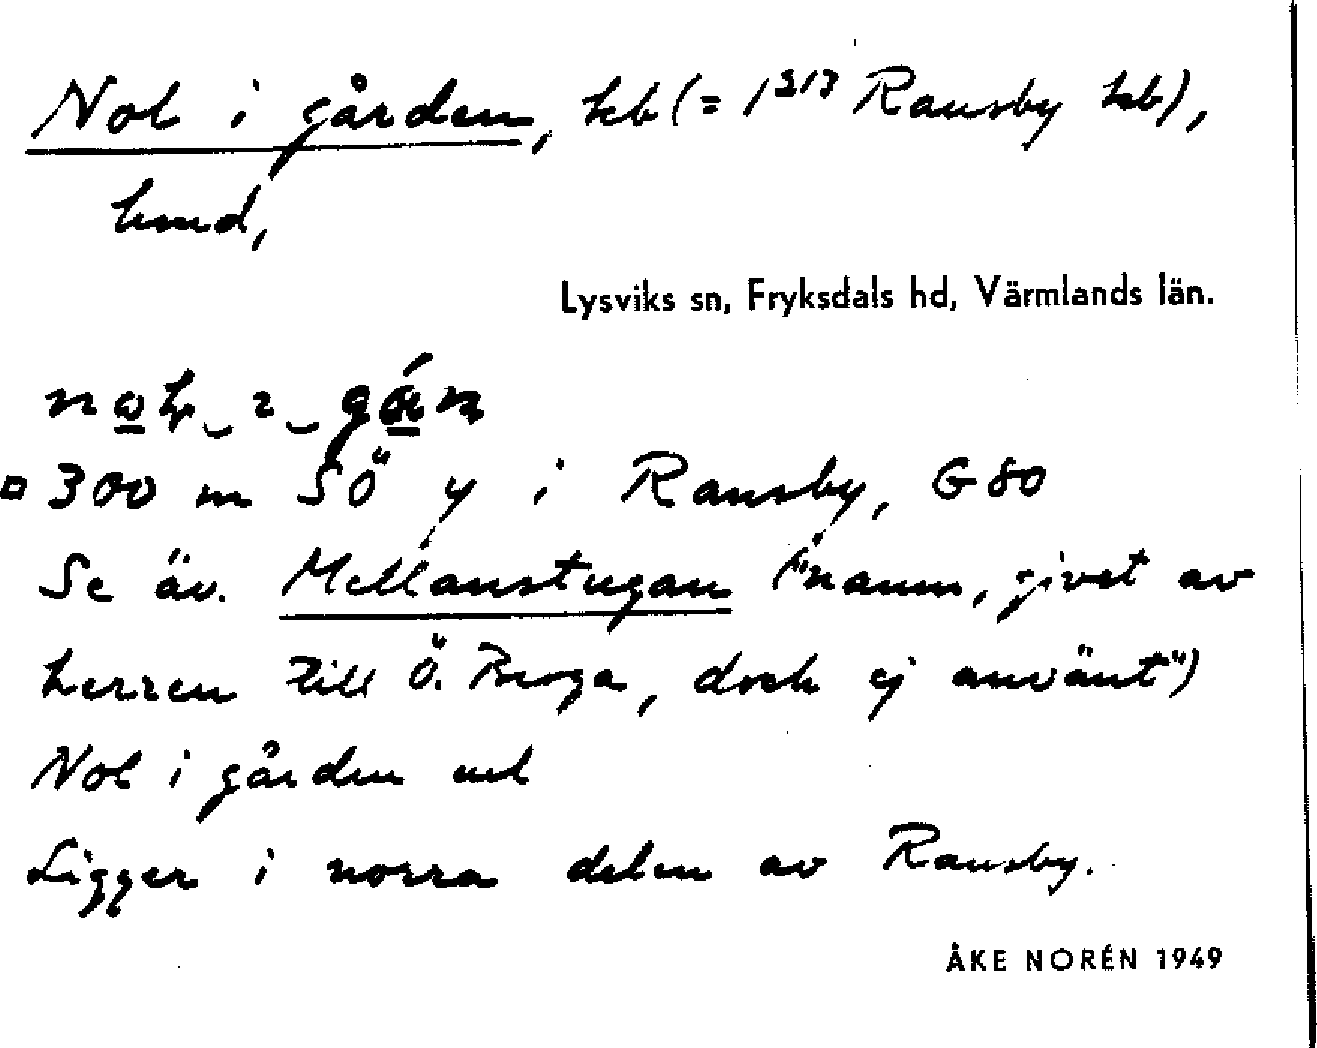 Nol i gården, hb (= 1³¹⁷ Ransby hb),
hmd,
Lysviks sn, Fryksdals hd, Värmlands län.
300 m SÖ y i Ransby, G 80
Se äv. Mellanstugan ("namn, givet av
herren till Ö. Berga, doch ej använt")
Nol i gården uel
Ligger i norra delen av Ransby.
ÅKE NORÉN 1949